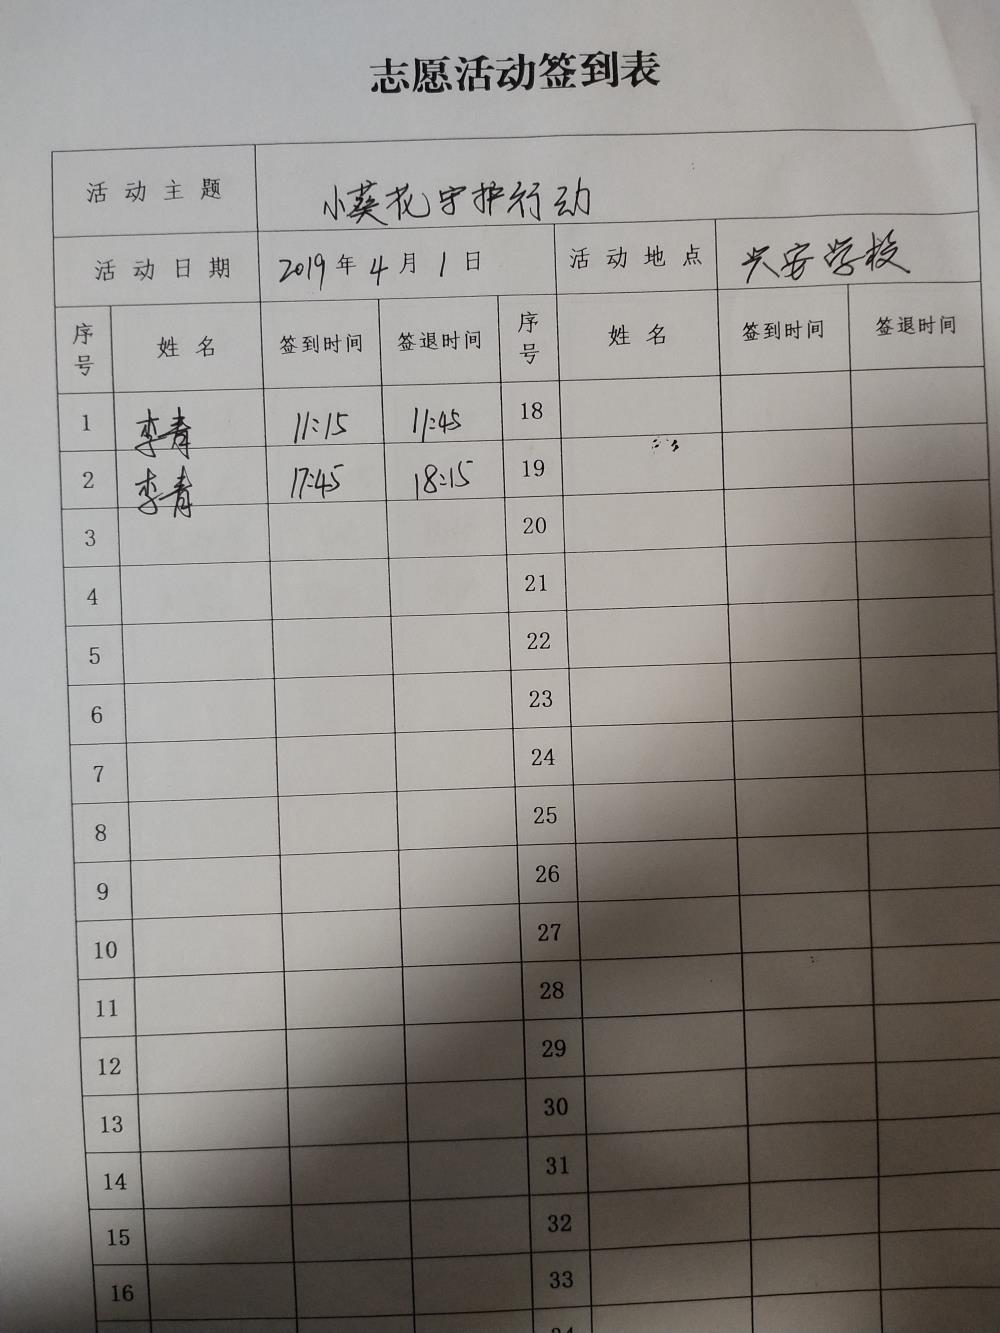 志愿活动签到表
活动主题 小葵花守护行动
活动日期 2019年4月1日 活动地点 兴安学校
序号 姓名 签到时间 签退时间 序号 姓名 签到时间 签退时间
1 李青 11:15 11:45 18
2 李青 17:45 18:15 19
3 20
4 21
5 22
6 23
7 24
8 25
9 26
10 27
11 28
12 29
13 30
14 31
15 32
16 33